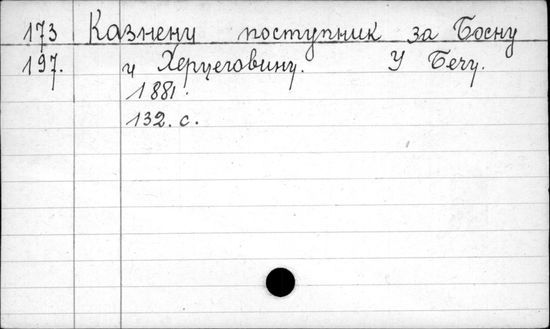 173 Казнени поступник за Босну
197. и Херцеговину. У Бечу.
1881.
132. с.